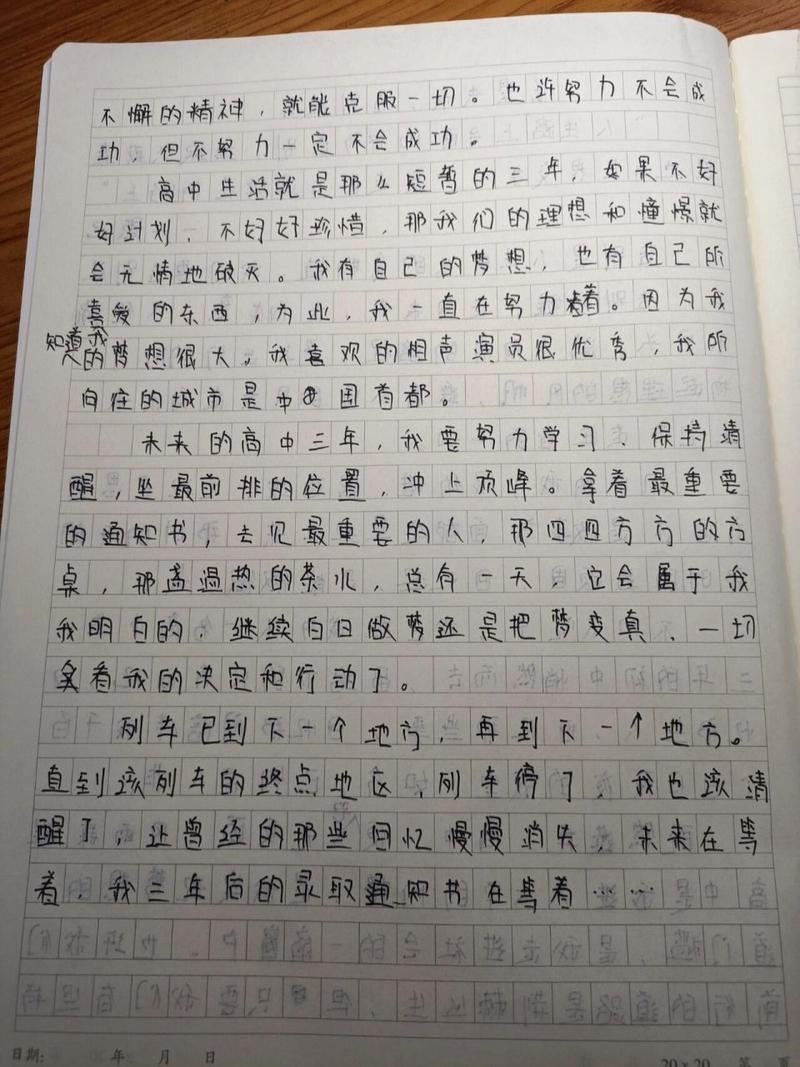 不懈的精神，就能克服一切。也许努力不会成
功，但不努力一定不会成功。
高中生活就是那么短暂的三年，如果不好
好计划、不好好珍惜，那我们的理想和憧憬就
会无情地破灭。我有自己的梦想，也有自己所
喜爱的东西，为此，我一直在努力着。因为我
知道我
的梦想很大。我喜欢的相声演员很优秀，我所
向往的城市是中国首都。
未来的高中三年，我要努力学习、保持清
醒，坐最前排的位置，冲上顶峰。拿着最重要
的通知书，去见最重要的人，那四四方方的方
桌，那盏过热的茶水，总有一天，它会属于我
我明白的，继续白日做梦还是把梦变真，一切
看我的决定和行动了。
列车已到下一个地方，再到下一个地方。
直到该列车的终点地区，列车停了，我也该清
醒了，让曾经的那些回忆慢慢消失，未来在等
着，我三年后的录取通知书在等着……
日期： 年 月 日
20×20 第 页